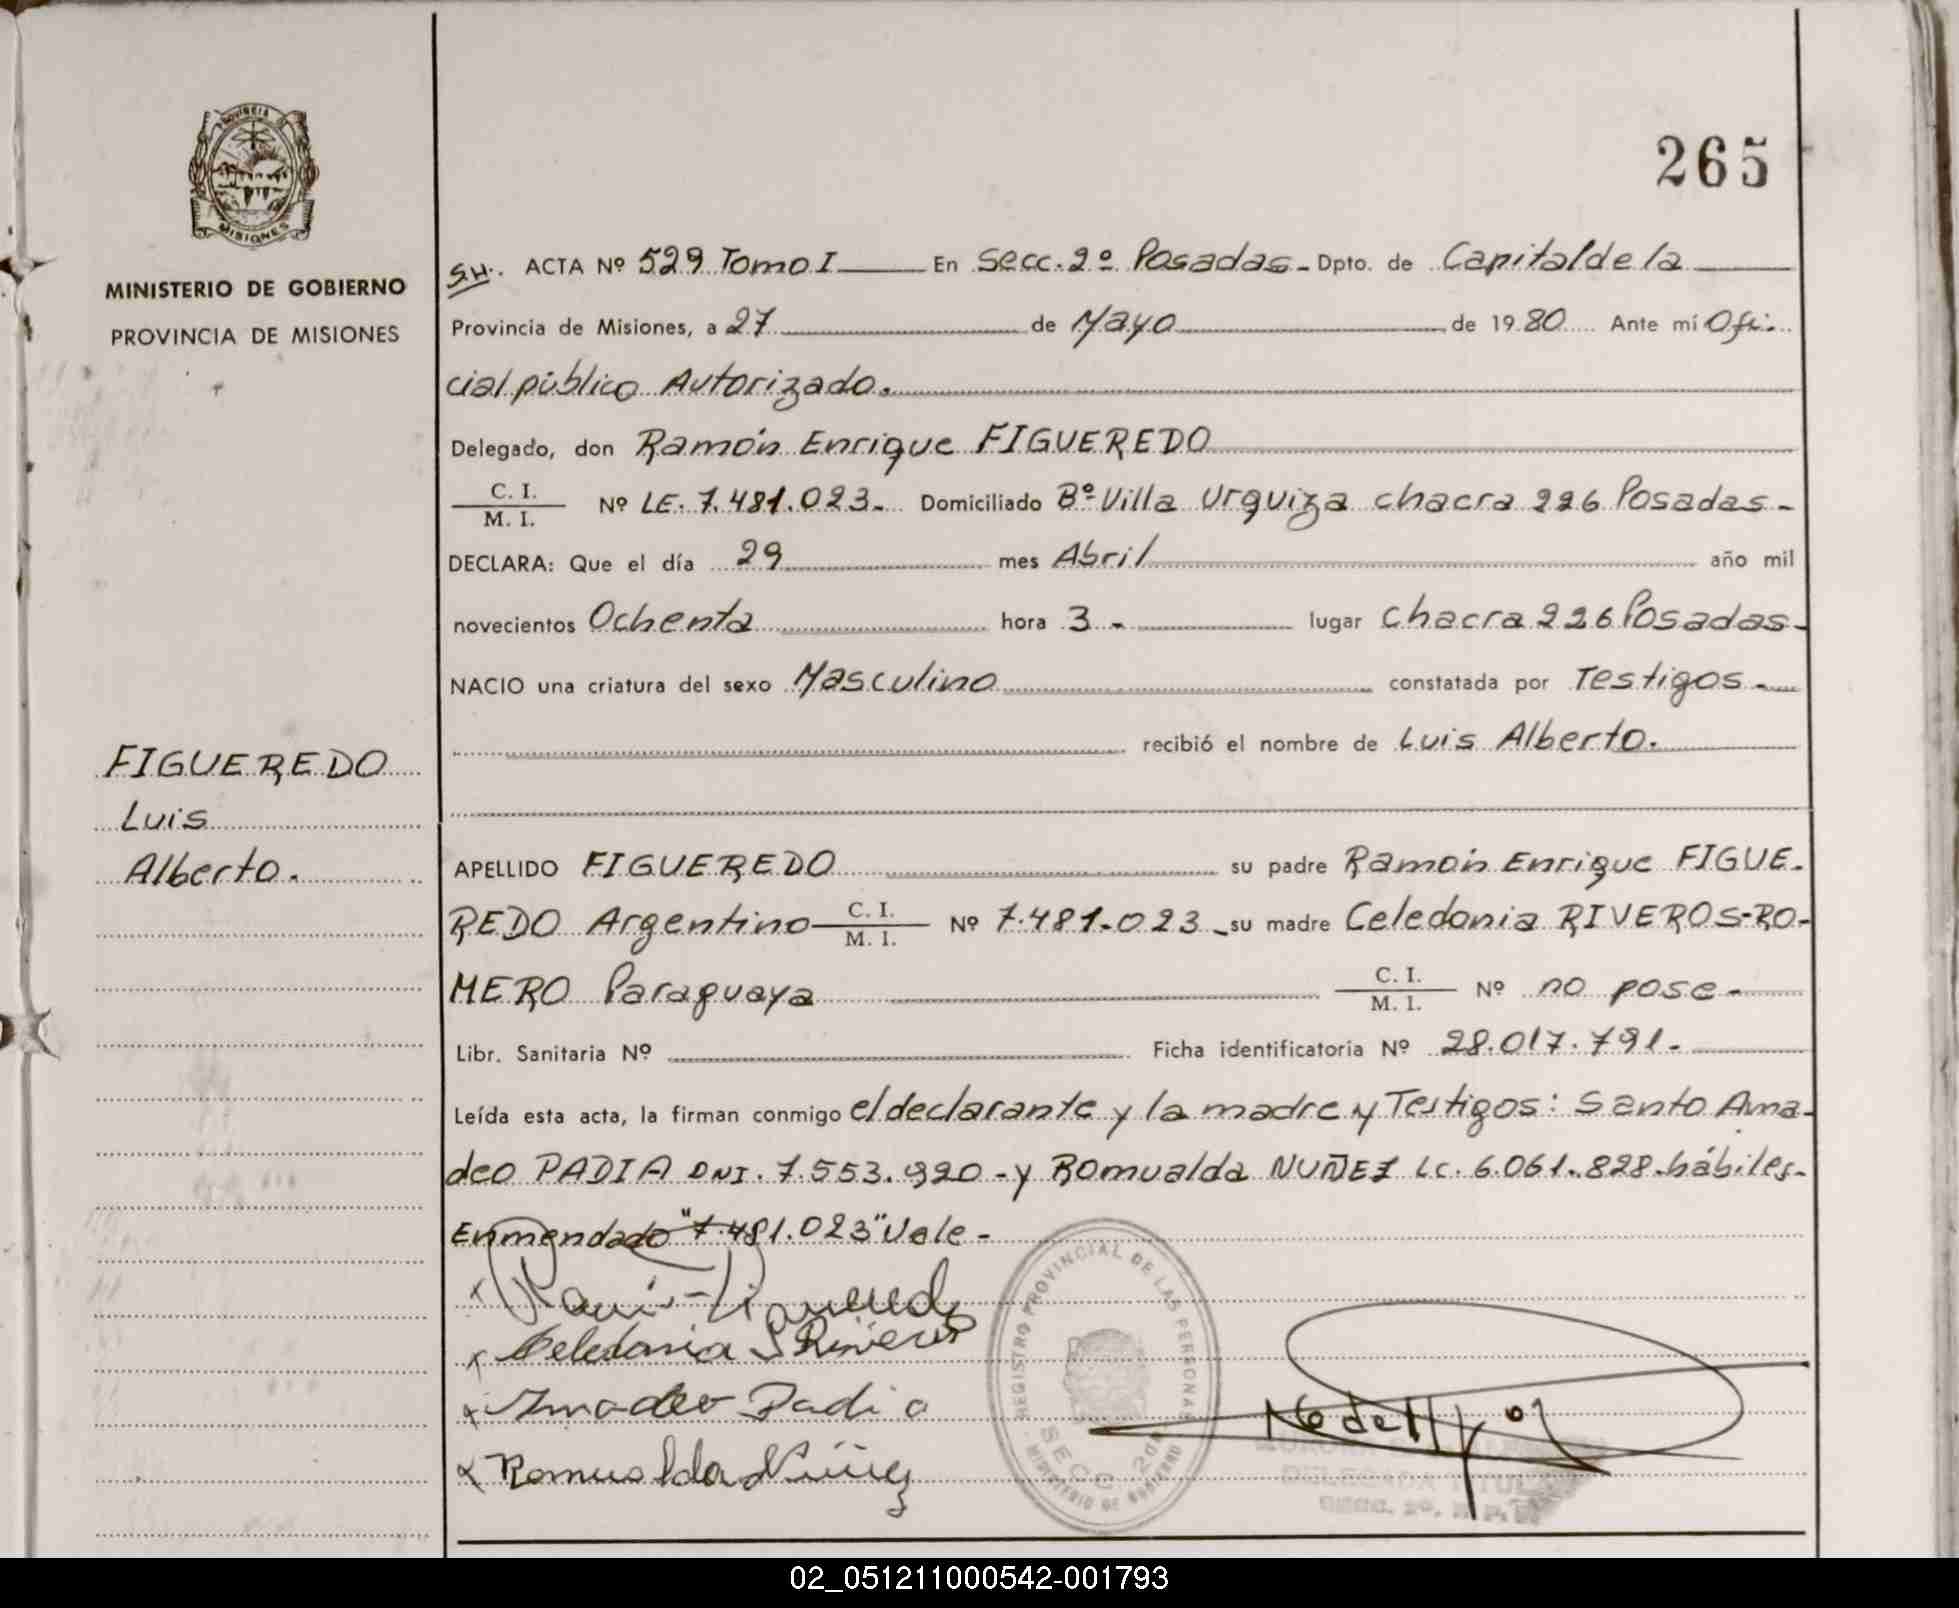 PROVINCIA
MISIONES
MINISTERIO DE GOBIERNO
PROVINCIA DE MISIONES
265
S.H. ACTA Nº 529 Tomo I En Secc. 2º Posadas - Dpto. de Capital de la
Provincia de Misiones, a 27 de Mayo de 1980 Ante mí Ofi-
cial público Autorizado.
Delegado, don Ramón Enrique FIGUEREDO
C. I.
M. I. Nº LE. 7.481.023. Domiciliado Bº Villa Urquiza chacra 226 Posadas -
DECLARA: Que el día 29 mes Abril año mil
novecientos Ochenta hora 3 - lugar Chacra 226 Posadas -
NACIO una criatura del sexo Masculino constatada por Testigos -
recibió el nombre de Luis Alberto.
FIGUEREDO
Luis
Alberto.
APELLIDO FIGUEREDO su padre Ramón Enrique FIGUE-
REDO Argentino C. I. M. I. Nº 7.481.023 - su madre Celedonia RIVEROS-RO-
MERO Paraguaya C. I. M. I. Nº no pose -
Libr. Sanitaria Nº Ficha identificatoria Nº 28.017.791 -
Leída esta acta, la firman conmigo el declarante y la madre y Testigos: Santo Ama-
deo PADIA DNI. 7.553.920 - y Romualda NUÑEZ LC. 6.061.828 - hábiles -
Enmendado "7.481.023" Vale -
x Ramón Figueredo
x Celedonia S Riveros
x Amadeo Padia
x Romualda Núñez
REGISTRO PROVINCIAL DE LAS PERSONAS
SECC. 2da
MINISTERIO DE GOBIERNO
DELEGADA TITULAR
SECC. 2º. R.P.P.
02_051211000542-001793